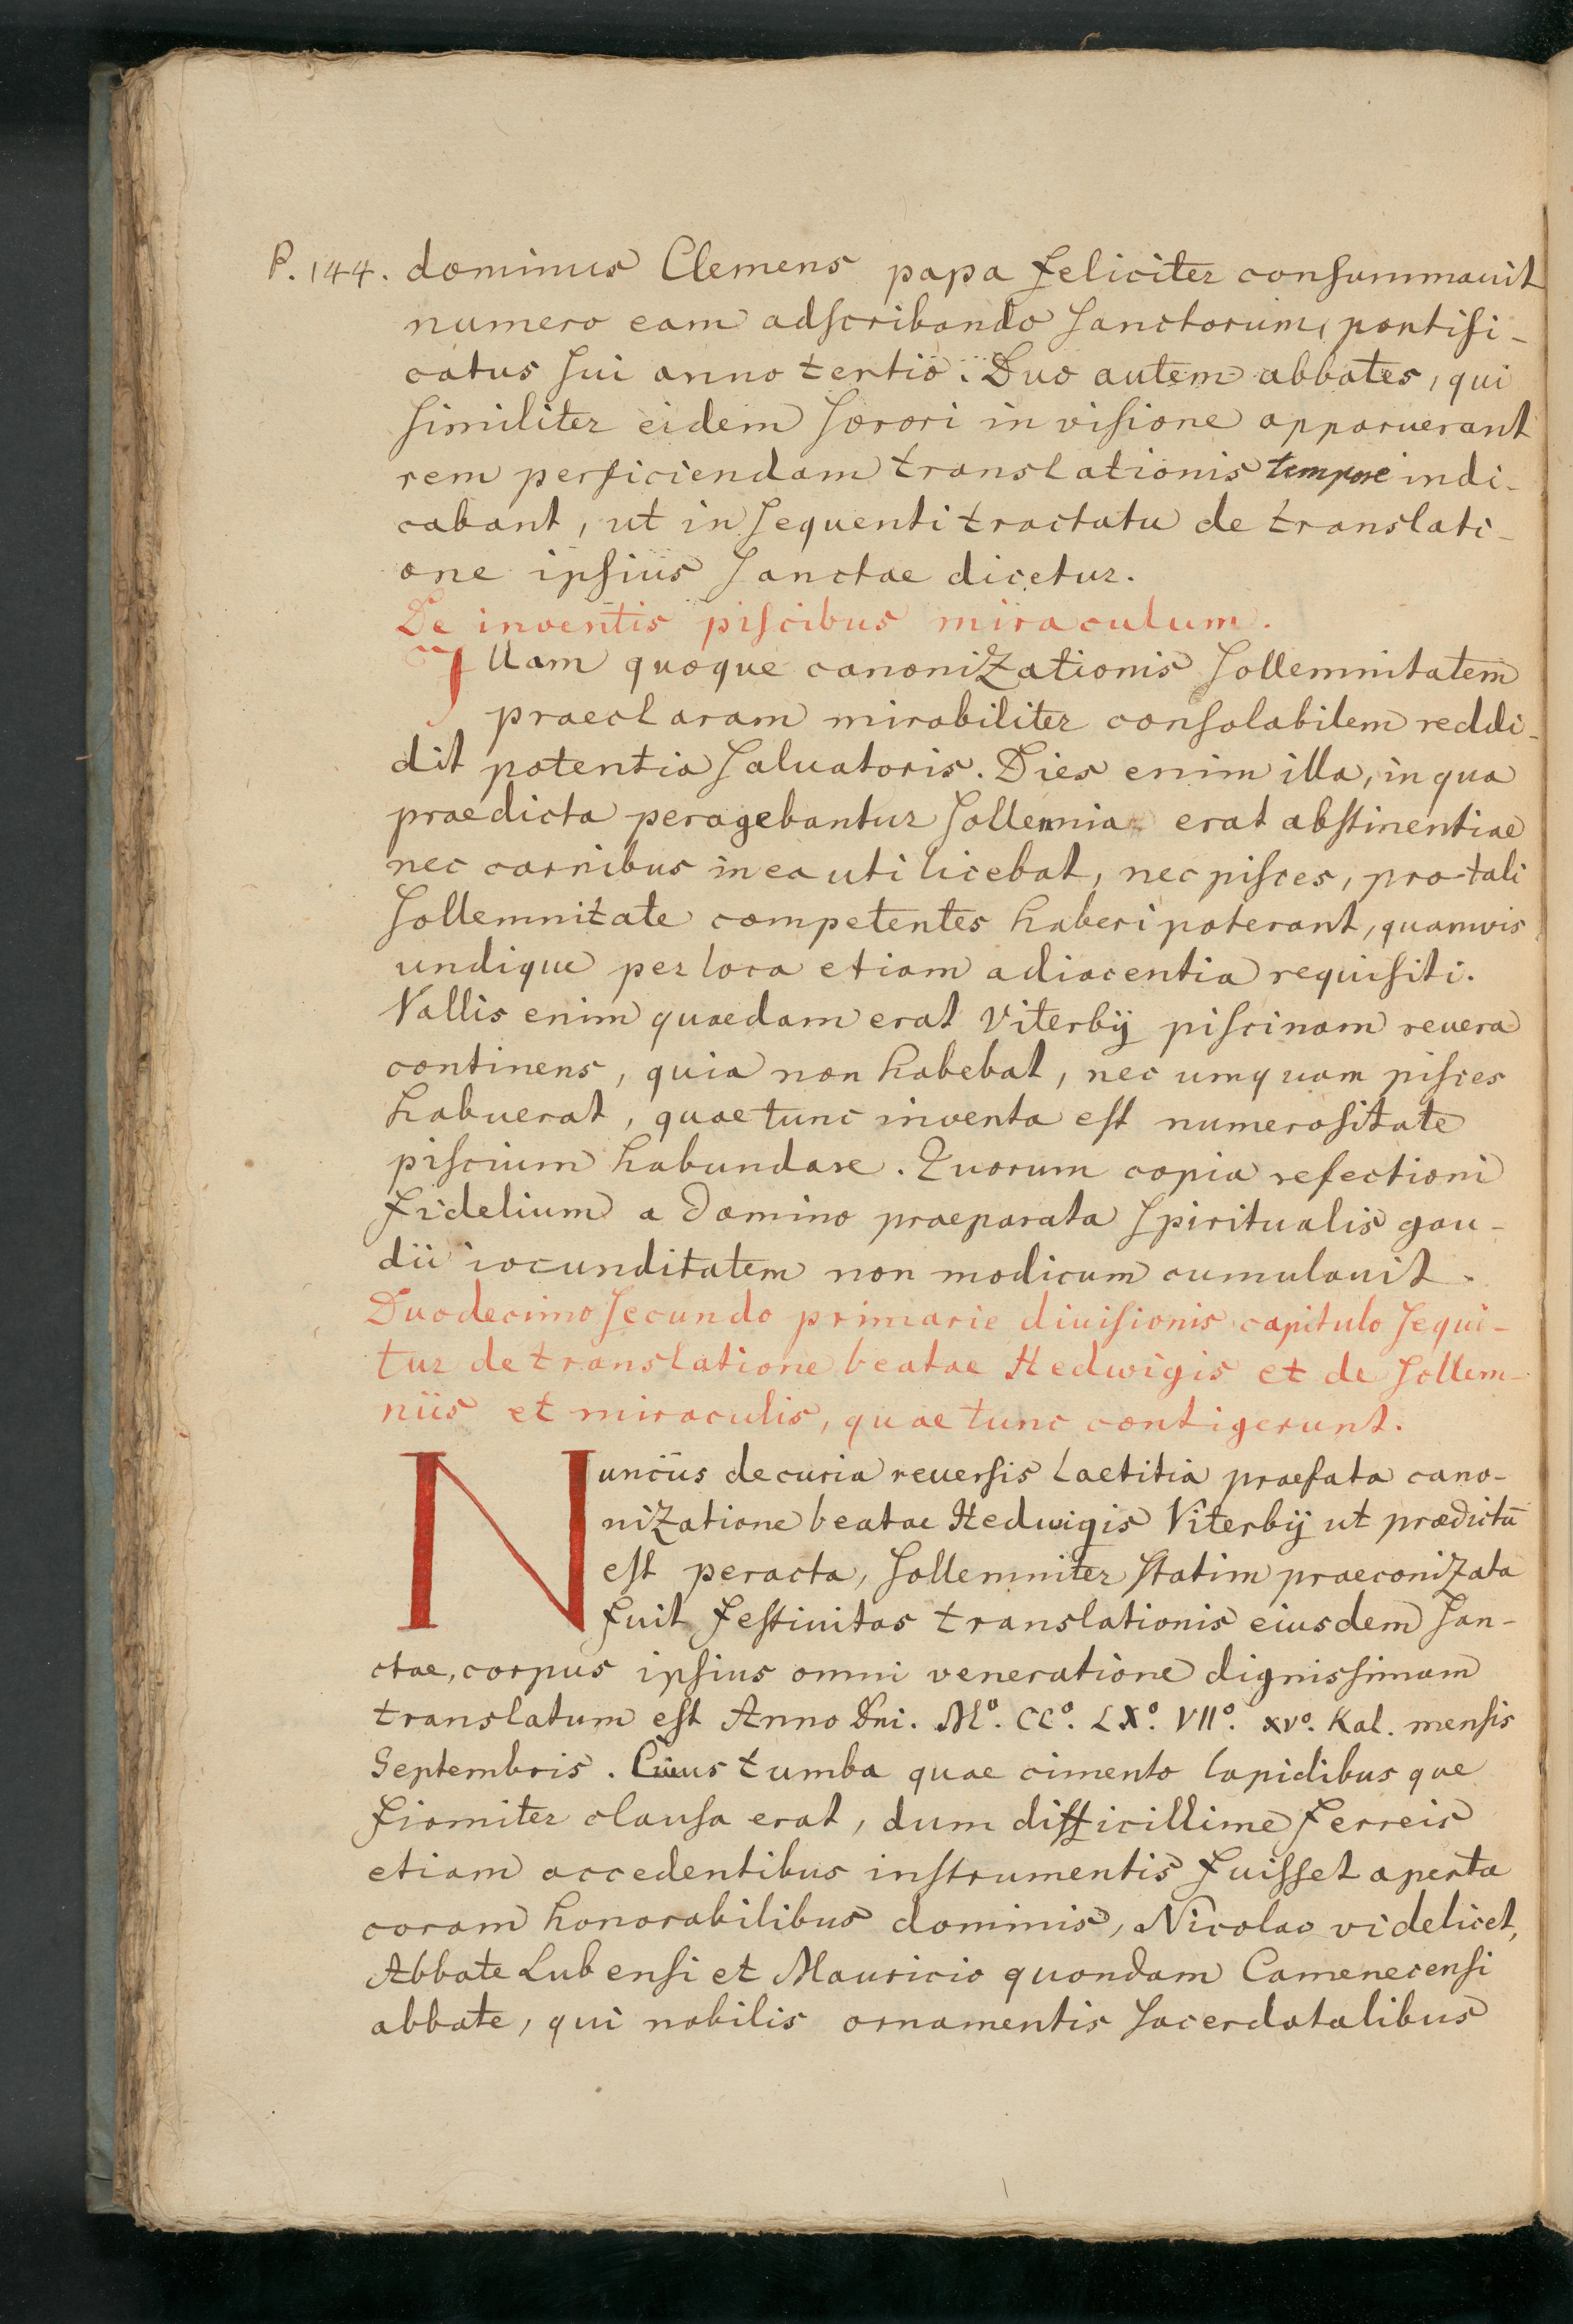 P. 144. dominus Clemens papa feliciter conſummauit
numero eam adſcribendo ſanctorum, pontifi-
catus ſui anno tertio. Duo autem abbates, qui
ſimiliter eidem ſorori in viſione apparuerant
rem perficiendam translationis tempore indi-
cabant, ut in ſequenti tractatu de translati-
one ipſius ſanctae dicetur.
De inventis piſcibus miraculum.
Illam quoque canoniZationis ſollemnitatem
praeclaram mirabiliter conſolabilem reddi-
dit potentia ſaluatoris. Dies enim illa, in qua
praedicta peragebantur ſollemnia erat abſtinentiae
nec carnibus in ea uti licebat, nec piſces, pro tali
ſollemnitate competentes haberi poterant, quamvis
undique per loca etiam adiacentia requiſiti.
Vallis enim quaedam erat Viterbij piſcinam reuera
continens, quia non habebat, nec umquam piſces
habuerat, quae tunc inventa eſt numeroſitate
piſcium habundare. Quorum copia refectioni
fidelium a Domino praeparata ſpiritualis gau-
dii iocunditatem non modicum cumulauit.
Duodecimo ſecundo primarie diuiſionis capitulo ſequi-
tur de translatione beatae Hedwigis et de ſollem-
niis et miraculis, quae tunc contigerunt.
Nunciis de curia reuerſis laetitia praefata cano-
niZatione beatae Hedwigis Viterbij ut prædictū
eſt peracta, ſollemniter ſtatim praeconiZata
fuit feſtiuitas translationis eiusdem ſan-
ctae, corpus ipſius omni veneratione dignisſimam
translatum eſt Anno Dni. Mº. CCº. LXº. VIIº. XVº. Kal. menſis
Septembris. Cuius tumba quae cimento lapidibus que
firmiter clauſa erat, dum difficillime ferreis
etiam accedentibus inſtrumentis fuiſſet aperta
coram honorabilibus dominis, Nicolao videlicet,
Abbate Lubenſi et Mauricio quondam Camenecenſi
abbate, qui nobilis ornamentis ſacerdotalibus